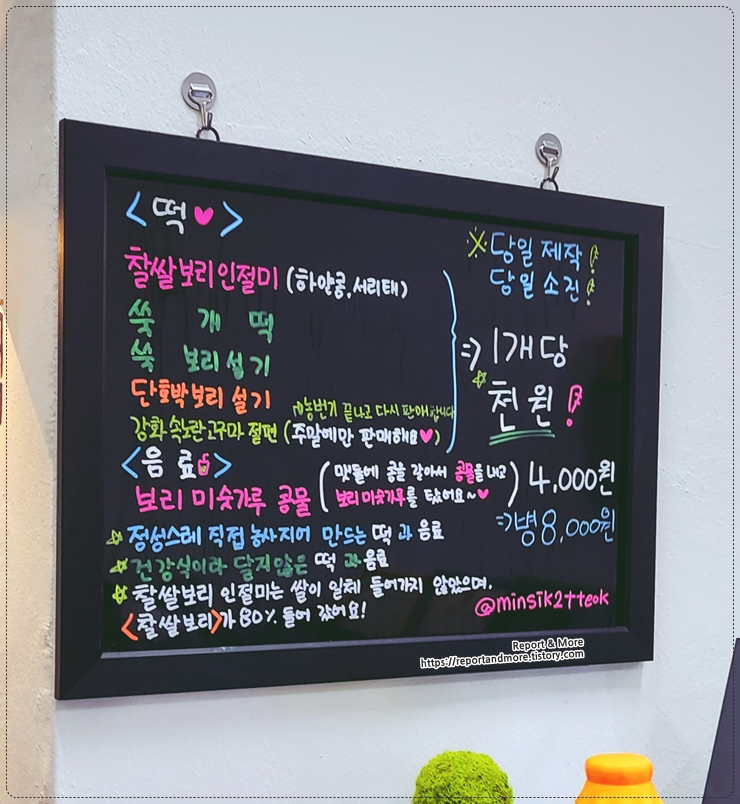 <떡♥>
찰쌀보리인절미 (하얀콩, 서리태)
쑥 개 떡
쑥 보리설기
단호박보리설기
농번기 끝나고 다시 판매합니다
강화속노란고구마 절편 (주말에만 판매해요♥)
※당일 제작!
당일 소진!
⇒ 1개당
☆천원!
<음료>
보리 미숫가루 콩물 (맷돌에 콩을 갈아서 콩물을 내고
보리미숫가루를 탔어요~♥) 4,000원
⇒병 8,000원
☆정성스레 직접 농사지어 만드는 떡과 음료
☆건강식이라 달지않은 떡과 음료
☆찰쌀보리 인절미는 쌀이 일체 들어가지 않았으며,
<찰쌀보리>가 80% 들어 갔어요!
@minsik2tteok
Report & More
https://reportandmore.tistory.com